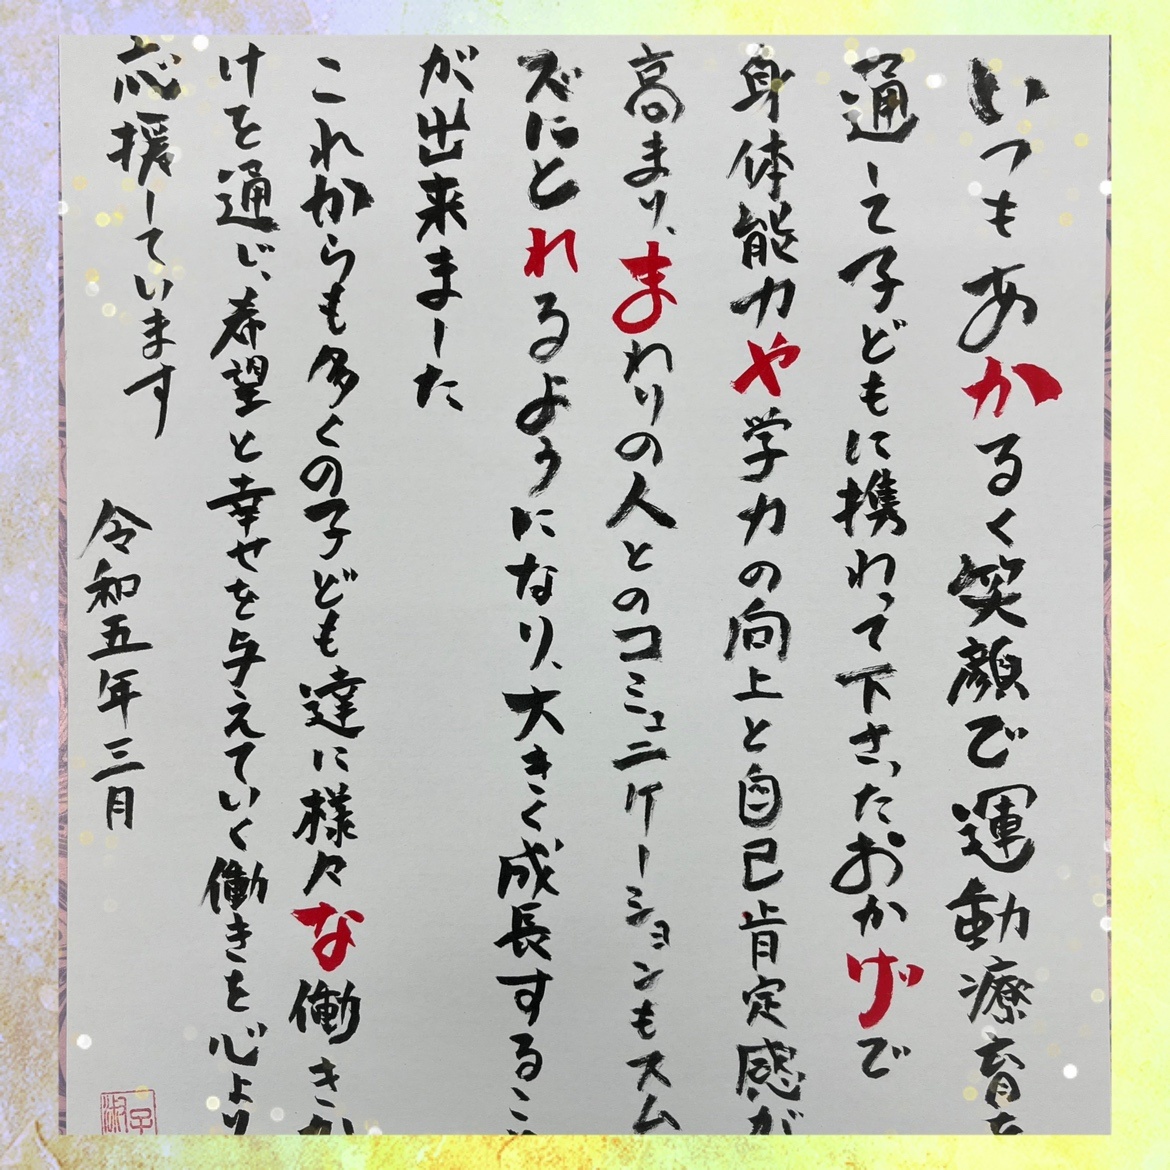 いつもあかるく笑顔で運動療育を
通して子どもに携わって下さったおかげで
身体能力や学力の向上と自己肯定感が
高まり、まわりの人とのコミュニケーションもスム
ズにとれるようになり、大きく成長すること
が出来ました
これからも多くの子ども達に様々な働きか
けを通じ、希望と幸せを与えていく働きを心より
応援しています
令和五年三月
淑子